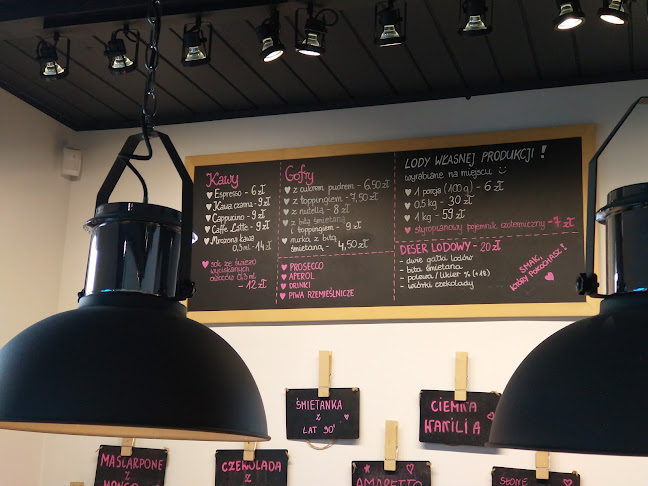 Kawy
♥ Espresso - 6 zł
♥ Kawa czarna - 9 zł
♥ Cappucino - 9 zł
♥ Caffe Latte - 9 zł
♥ Mrożona kawa
0,3 ml - 14 zł
♥ sok ze świeżo
wyciskanych
owoców 0,3 ml
- 12 zł
Gofry
♥ z cukrem pudrem - 6,50 zł
♥ z toppingiem - 7,50 zł
♥ z nutellą - 8 zł
♥ z bitą śmietaną
i toppingem - 9 zł
♥ rurka z bitą
śmietaną - 4,50 zł
♥ PROSECCO
♥ APEROL
♥ DRINKI
♥ PIWA RZEMIEŚLNICZE
LODY WŁASNEJ PRODUKCJI !
wyrabiane na miejscu
♥ 1 porcja (100 g) - 6 zł
♥ 0,5 kg - 30 zł
♥ 1 kg - 59 zł
♥ styropianowy pojemnik izotermiczny - 7 zł
DESER LODOWY - 20 zł
- dwie gałki lodów
- bita śmietana
- polewa / likier % (+18)
- wiórki czekolady
SMAK,
KTÓRY POKOCHASZ!
ŚMIETANKA
Z
LAT 90'
CIEMNA
WANILIA
MASCARPONE
Z
CZEKOLADA
Z
AMARETTO
SŁONE